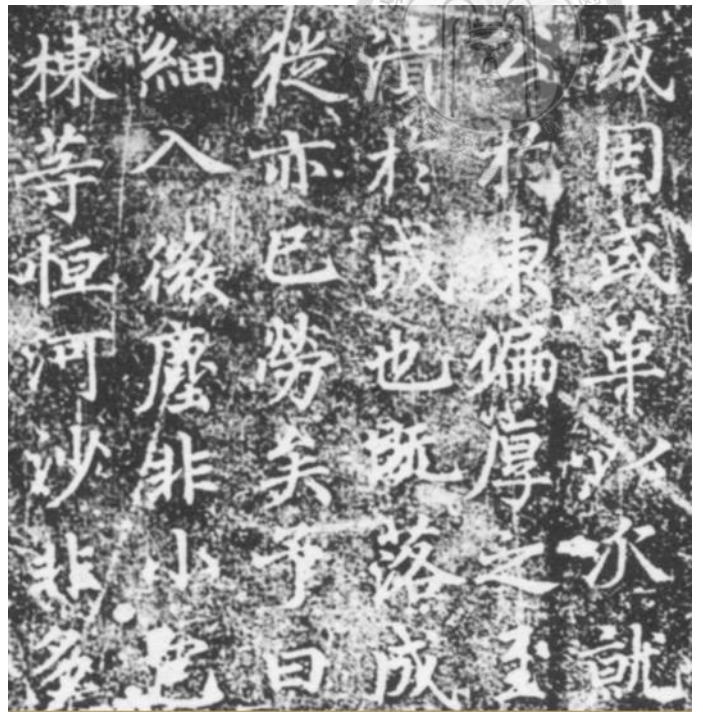 或因或革以水就
公於東偏厚之至
濆於成也既落成
從亦已勞矣予曰
細入微塵非小包
棟等恒河沙非多